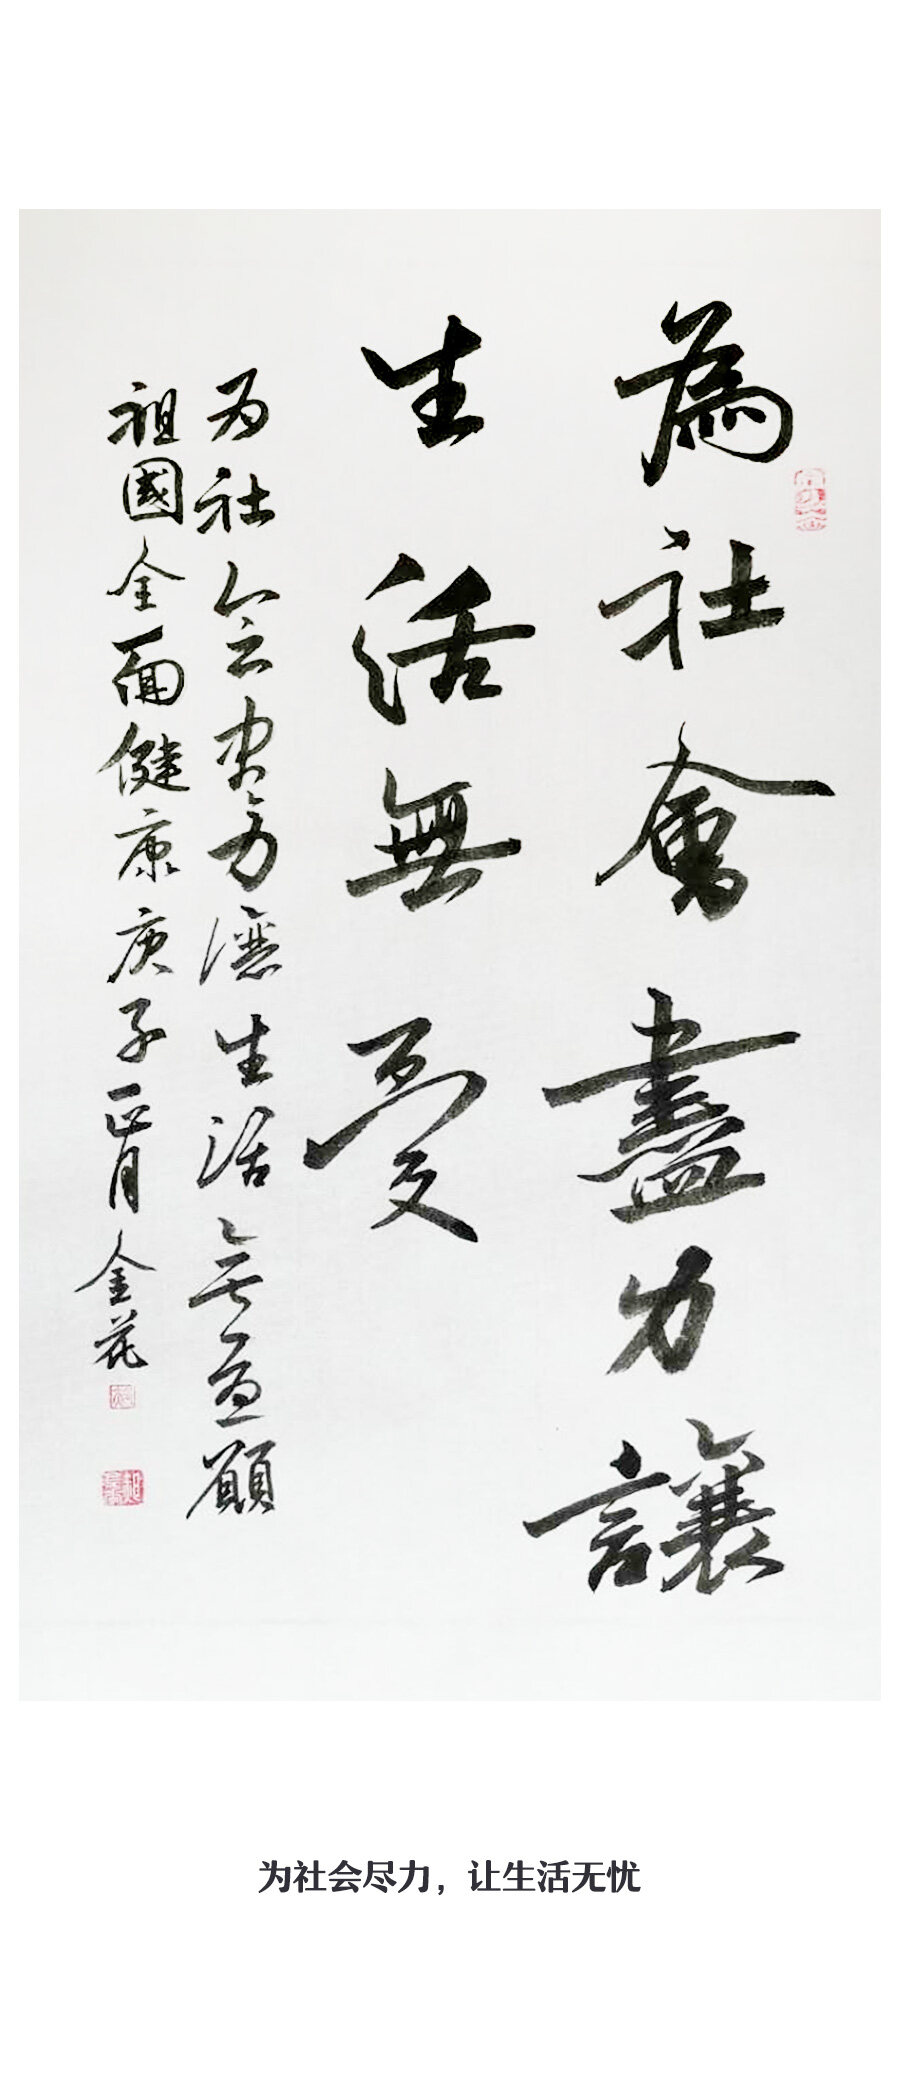 為社會盡力讓
生活無憂
为社会尽力讓生活無憂願
祖國全面健康庚子正月金花
为社会尽力，让生活无忧